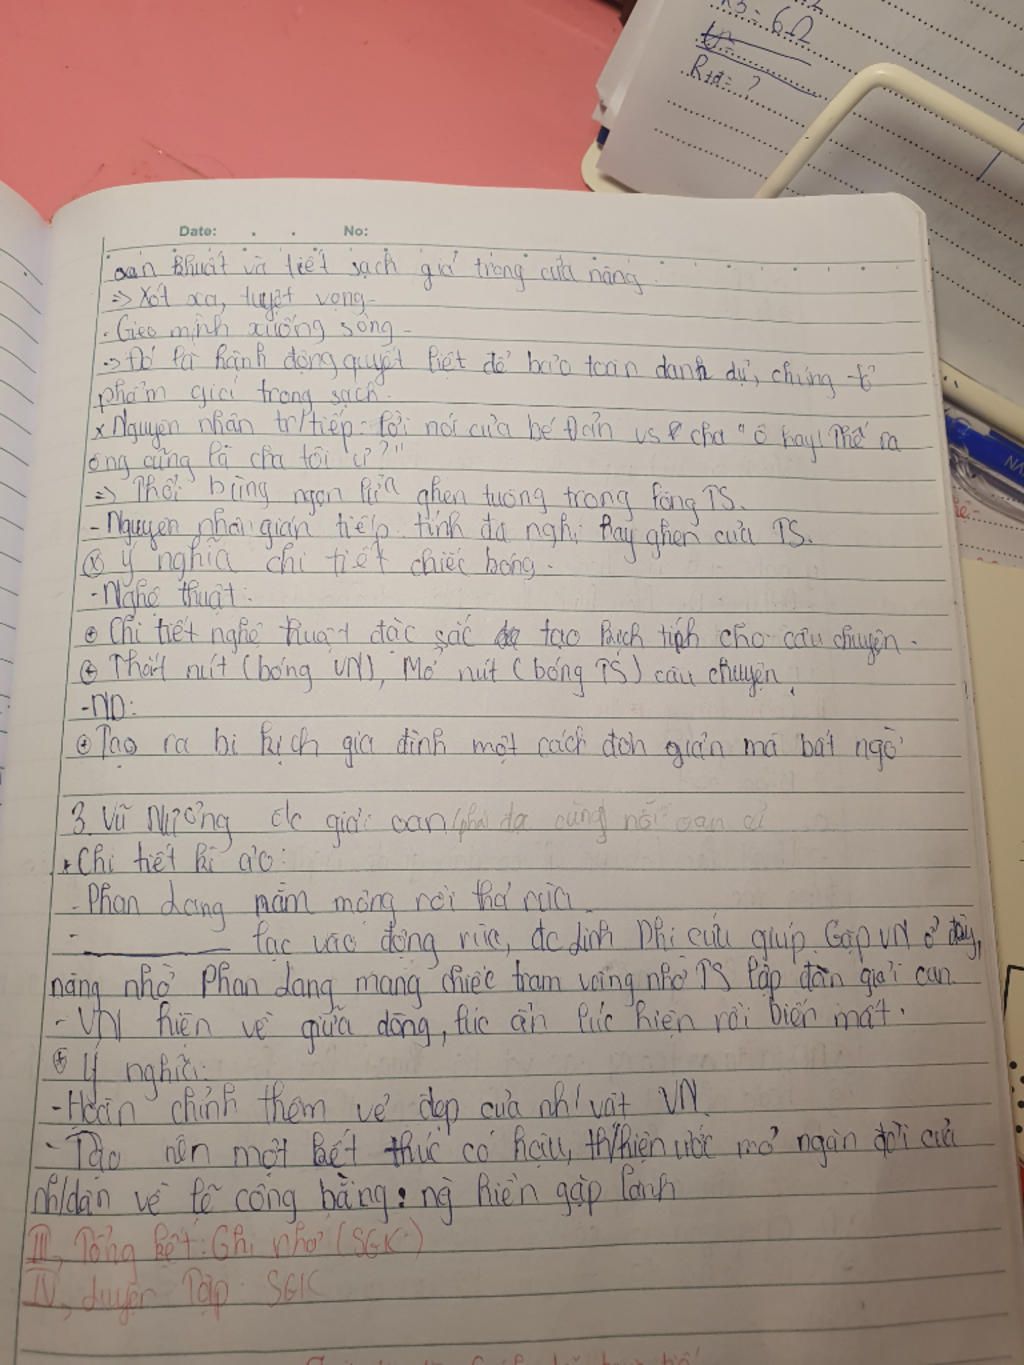 R3 = 6Ω
R tđ = ?
Date: . . No:
oan khuất và tiết sạch giá trong của nàng.
=> Xót xa, tuyệt vọng.
- Gieo mình xuống sông.
-> Đó là hành động quyết liệt để bảo toàn danh dự, chứng tỏ
phẩm giá trong sạch.
x Nguyên nhân tr/tiếp: lời nói của bé Đản vs cha "Ô hay! Thế ra
ông cũng là cha tôi ư?"
=> Thổi bùng ngọn lửa ghen tuông trong lòng TS.
- Nguyên nhân gián tiếp: tính đa nghi hay ghen của TS.
⊗ Ý nghĩa chi tiết chiếc bóng.
- Nghệ thuật:
⊕ Chi tiết nghệ thuật đặc sắc tạo kịch tính cho câu chuyện.
⊕ Thắt nút (bóng VN), Mở nút (bóng TS) câu chuyện.
- ND:
⊕ Tạo ra bi kịch gia đình một cách đơn giản mà bất ngờ
3. Vũ Nương đc giải oan
* Chi tiết kì ảo:
- Phan Lang nằm mộng rồi thả rùa
- lạc vào động rùa, đc Linh Phi cứu giúp. Gặp VN ở đây,
nàng nhờ Phan Lang mang chiếc trâm vàng nhờ TS lập đàn giải oan.
- VN hiện về giữa dòng, lúc ẩn lúc hiện rồi biến mất.
⊕ Ý nghĩa:
- Hoàn chỉnh thêm vẻ đẹp của nh/vật VN.
- Tạo nên một kết thúc có hậu, th/hiện ước mơ ngàn đời của
nh/dân về lẽ công bằng: ng hiền gặp lành
III, Tổng kết: Ghi nhớ (SGK)
IV, Luyện Tập SGK